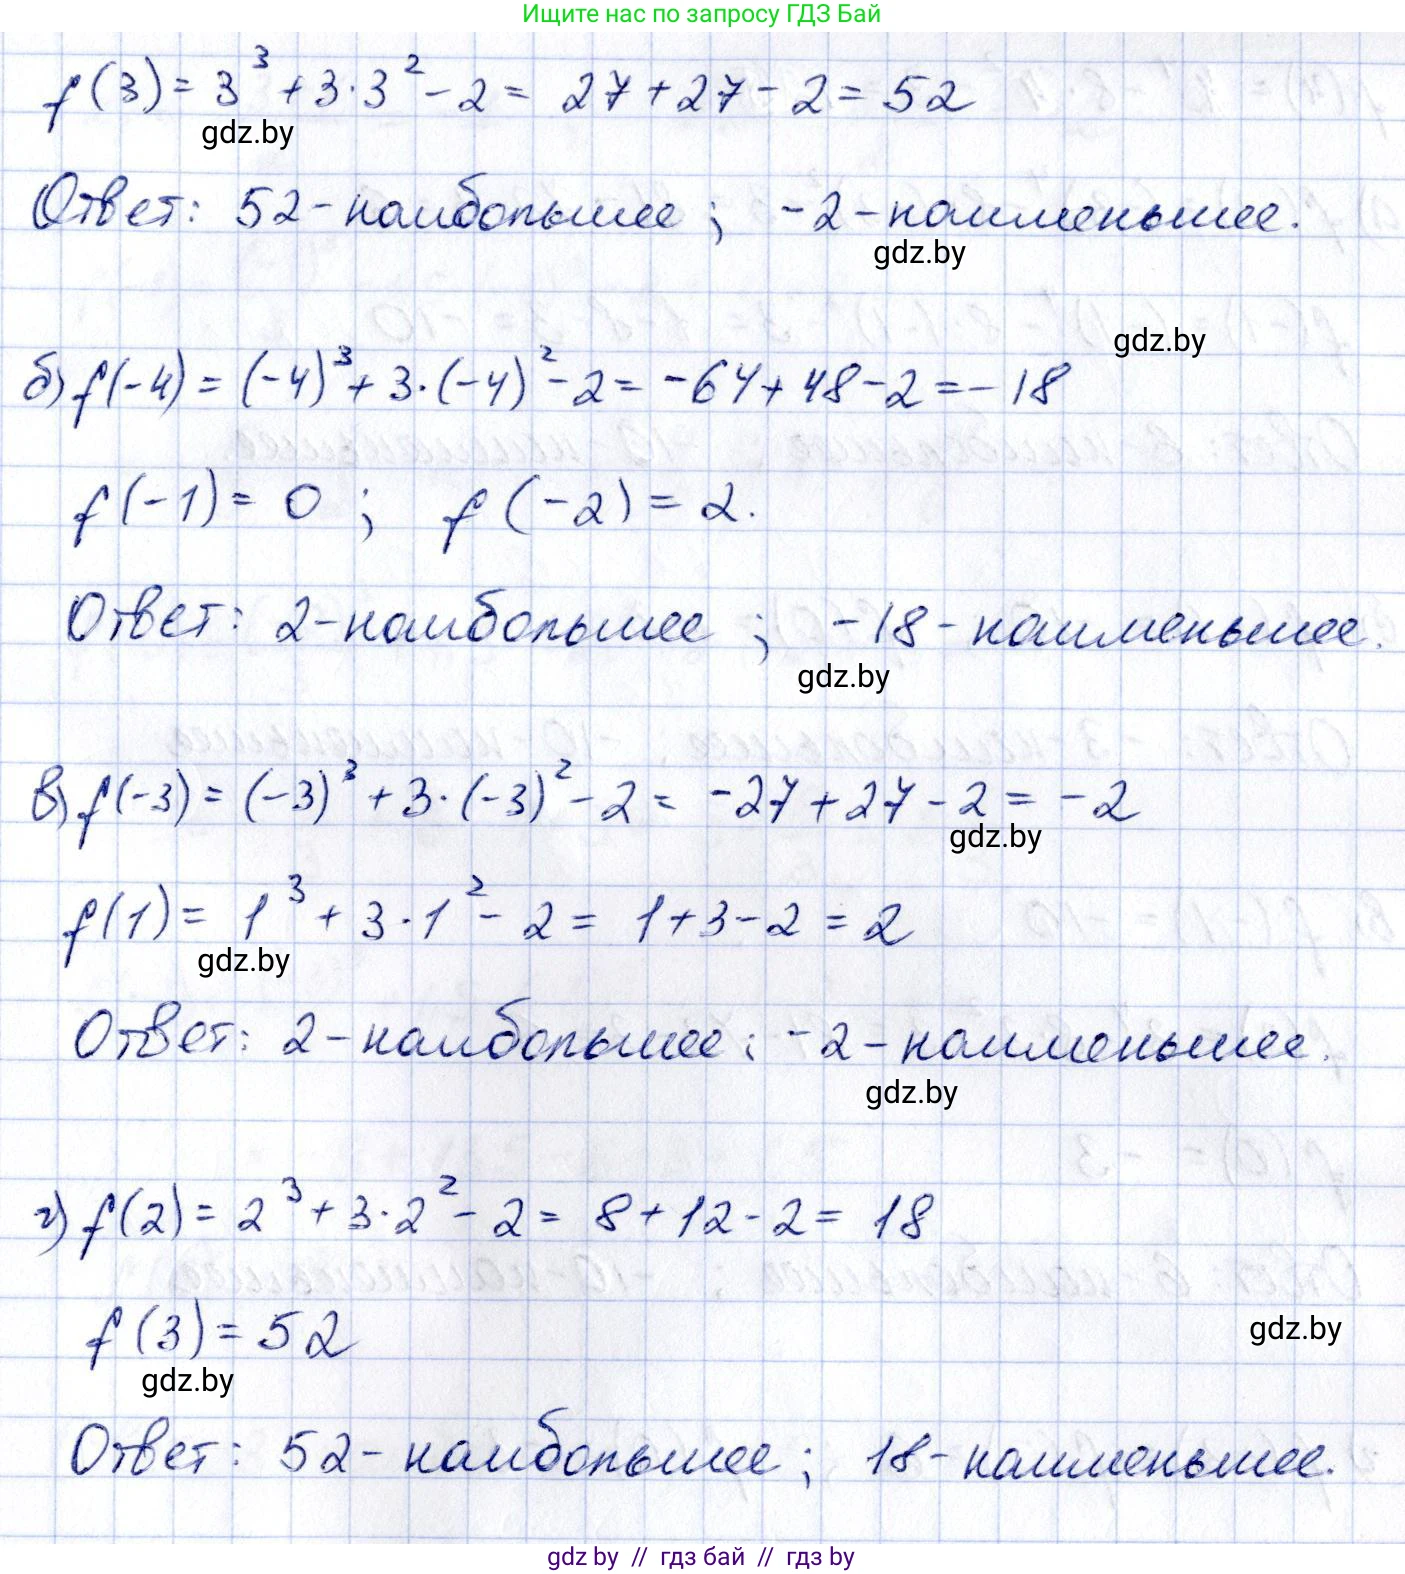 Ищите нас по запросу ГДЗ Бай
f(3) = 3³ + 3·3² - 2 = 27 + 27 - 2 = 52
gdz.by
Ответ: 52 - наибольшее ; -2 - наименьшее.
gdz.by
gdz.by
б) f(-4) = (-4)³ + 3·(-4)² - 2 = -64 + 48 - 2 = -18
f(-1) = 0 ; f(-2) = 2.
Ответ: 2 - наибольшее ; -18 - наименьшее.
gdz.by
в) f(-3) = (-3)³ + 3·(-3)² - 2 = -27 + 27 - 2 = -2
gdz.by
f(1) = 1³ + 3·1² - 2 = 1 + 3 - 2 = 2
gdz.by
Ответ: 2 - наибольшее ; -2 - наименьшее.
gdz.by
г) f(2) = 2³ + 3·2² - 2 = 8 + 12 - 2 = 18
f(3) = 52
gdz.by
gdz.by
Ответ: 52 - наибольшее ; 18 - наименьшее.
gdz by // гдз бай // гдз by